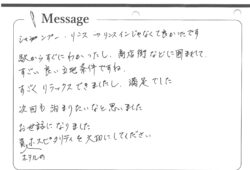 Message
シャンプー・リンス → リンスインじゃなくて良かったです
駅からすぐにわかったし、商店街などに囲まれてて
すごい良い立地条件ですね.
すごくリラックスできましたし、満足でした
次回も泊まりたいなと思いました
お世話になりました
真ホスピタリティを大切にしてください
ホテルの